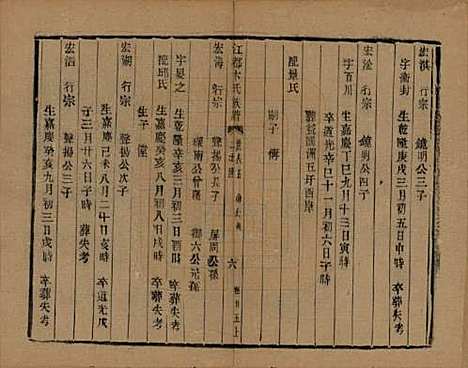 宏淇 行宗 鏡明公三子
字衞封 生乾隆庚戌三月初五日申時 卒葬失考
宏淦 行宗 鏡明公四子
字百川 生嘉慶丁巳九月十三日寅時
卒道光辛巳十一月初六日子時
配景氏
嗣子 傳
江都卞氏族譜
六 卷廿五上
宏海 行宗 聲揚公長子
字夏之 生乾隆辛亥三月初三日酉時 卒葬失考
配邱氏 生嘉慶癸亥八月初八日戌時
生子
宏湖 行宗 聲揚公次子
生嘉慶 八月二十日亥時 卒道光戊
子三月廿六日子時 葬失考
宏 行宗 聲揚公三子
生嘉慶癸亥九月初三日辰時 卒葬失考